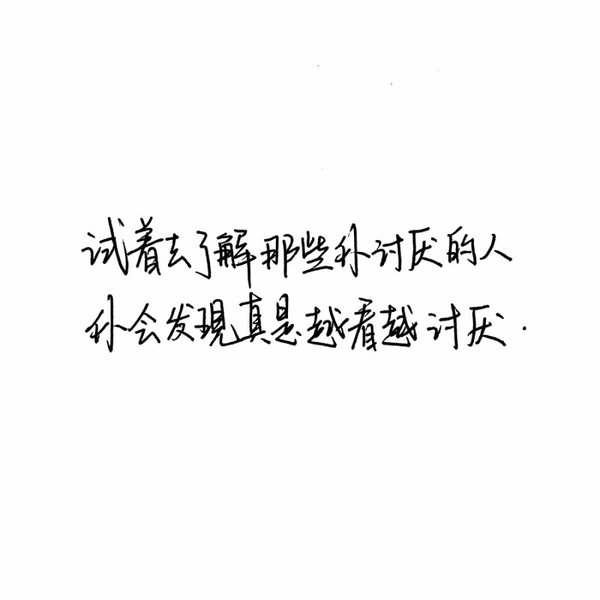 试着去了解那些你讨厌的人
你会发現真是越看越讨厌.